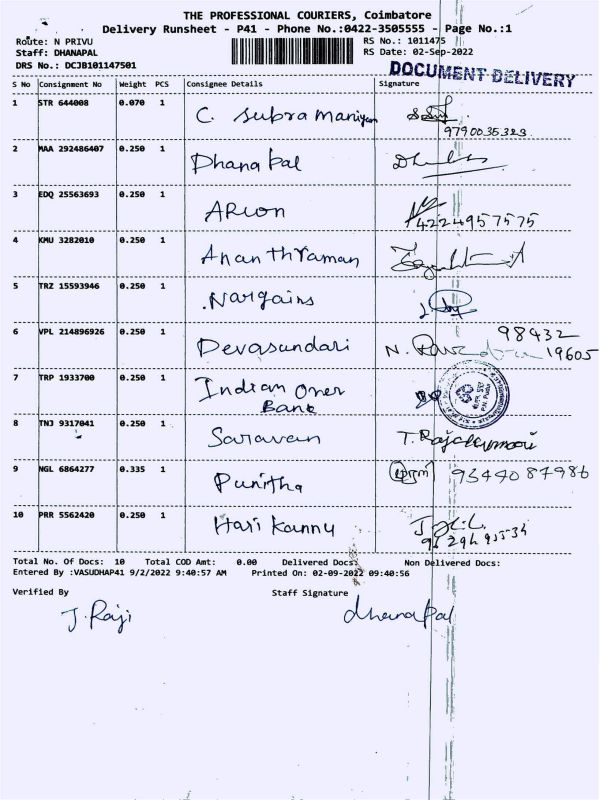 THE PROFESSIONAL COURIERS, Coimbatore
Delivery Runsheet - P41 - Phone No.:0422-3505555 - Page No.:1
Route: N PRIVU RS No.: 1011475
Staff: DHANAPAL RS Date: 02-Sep-2022
DRS No.: DCJB101147501
DOCUMENT DELIVERY
S No Consignment No Weight PCS Consignee Details Signature
1 STR 644008 0.070 1 C. Subramaniyam
9790035323
2 MAA 292486407 0.250 1 Dhanapal
3 EDQ 25563693 0.250 1 ARION 4224957575
4 KMU 3282010 0.250 1 Ananthraman
5 TRZ 15593946 0.250 1 Nargains
6 VPL 214896926 0.250 1 Devasundari N. 98432
19605
7 TRP 1933700 0.250 1 Indian Over
Bank
8 TNJ 9317041 0.250 1 Saravan T. Rajakumari
9 NGL 6864277 0.335 1 Punitha 9344087986
10 PRR 5562420 0.250 1 Hari Kannu
Total No. Of Docs: 10 Total COD Amt: 0.00 Delivered Docs: Non Delivered Docs:
Entered By :VASUDHAP41 9/2/2022 9:40:57 AM Printed On: 02-09-2022 09:40:56
Verified By Staff Signature
J. Raji dhanapal